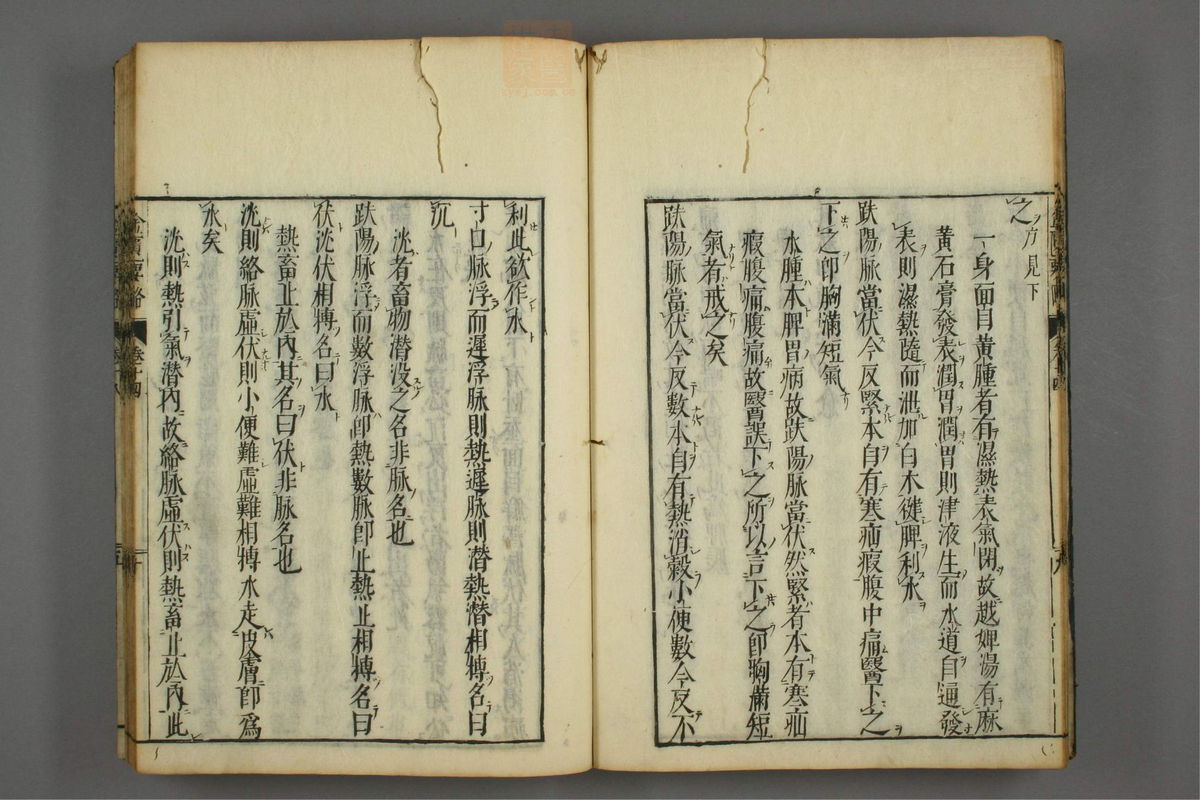 之方見下
一身面目黄腫者有濕熱表氣閉故越婢湯有麻
黄石膏發表潤胃潤胃則津液生而水道自通發
表則濕熱隨而泄加白木健脾利水
趺陽脉當伏今反緊本自有寒疝瘕腹中痛醫下之
下之即胸滿短氣
水腫本脾胃病故趺陽脉當伏然緊者本有寒疝
瘕腹痛腹痛故醫誤下之所以言下之即胸滿短
氣者戒之矣
趺陽脉當伏今反數本自有熱消穀小便數今反不
利此欲作水
寸口脉浮而遲浮脉則熱遲脉則潜熱潜相摶名曰
沉
沈者畜物潜没之名非脉名也
趺陽脉浮而數浮脉即熱數脉即止熱止相摶名曰
伏沈伏相摶名曰水
熱畜止於內其名曰伏非脉名也
沈則絡脉虛伏則小便難虛難相摶水走皮膚即爲
水矣
沈則熱引氣潜內故絡脉虛伏則熱畜止於內此
金匱要略
卷十四